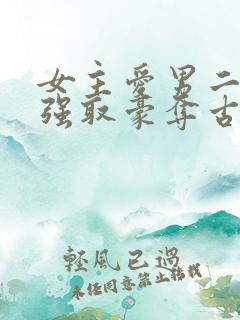 女主爱男二
强取豪夺古
輕風已過
未经同意禁止转载